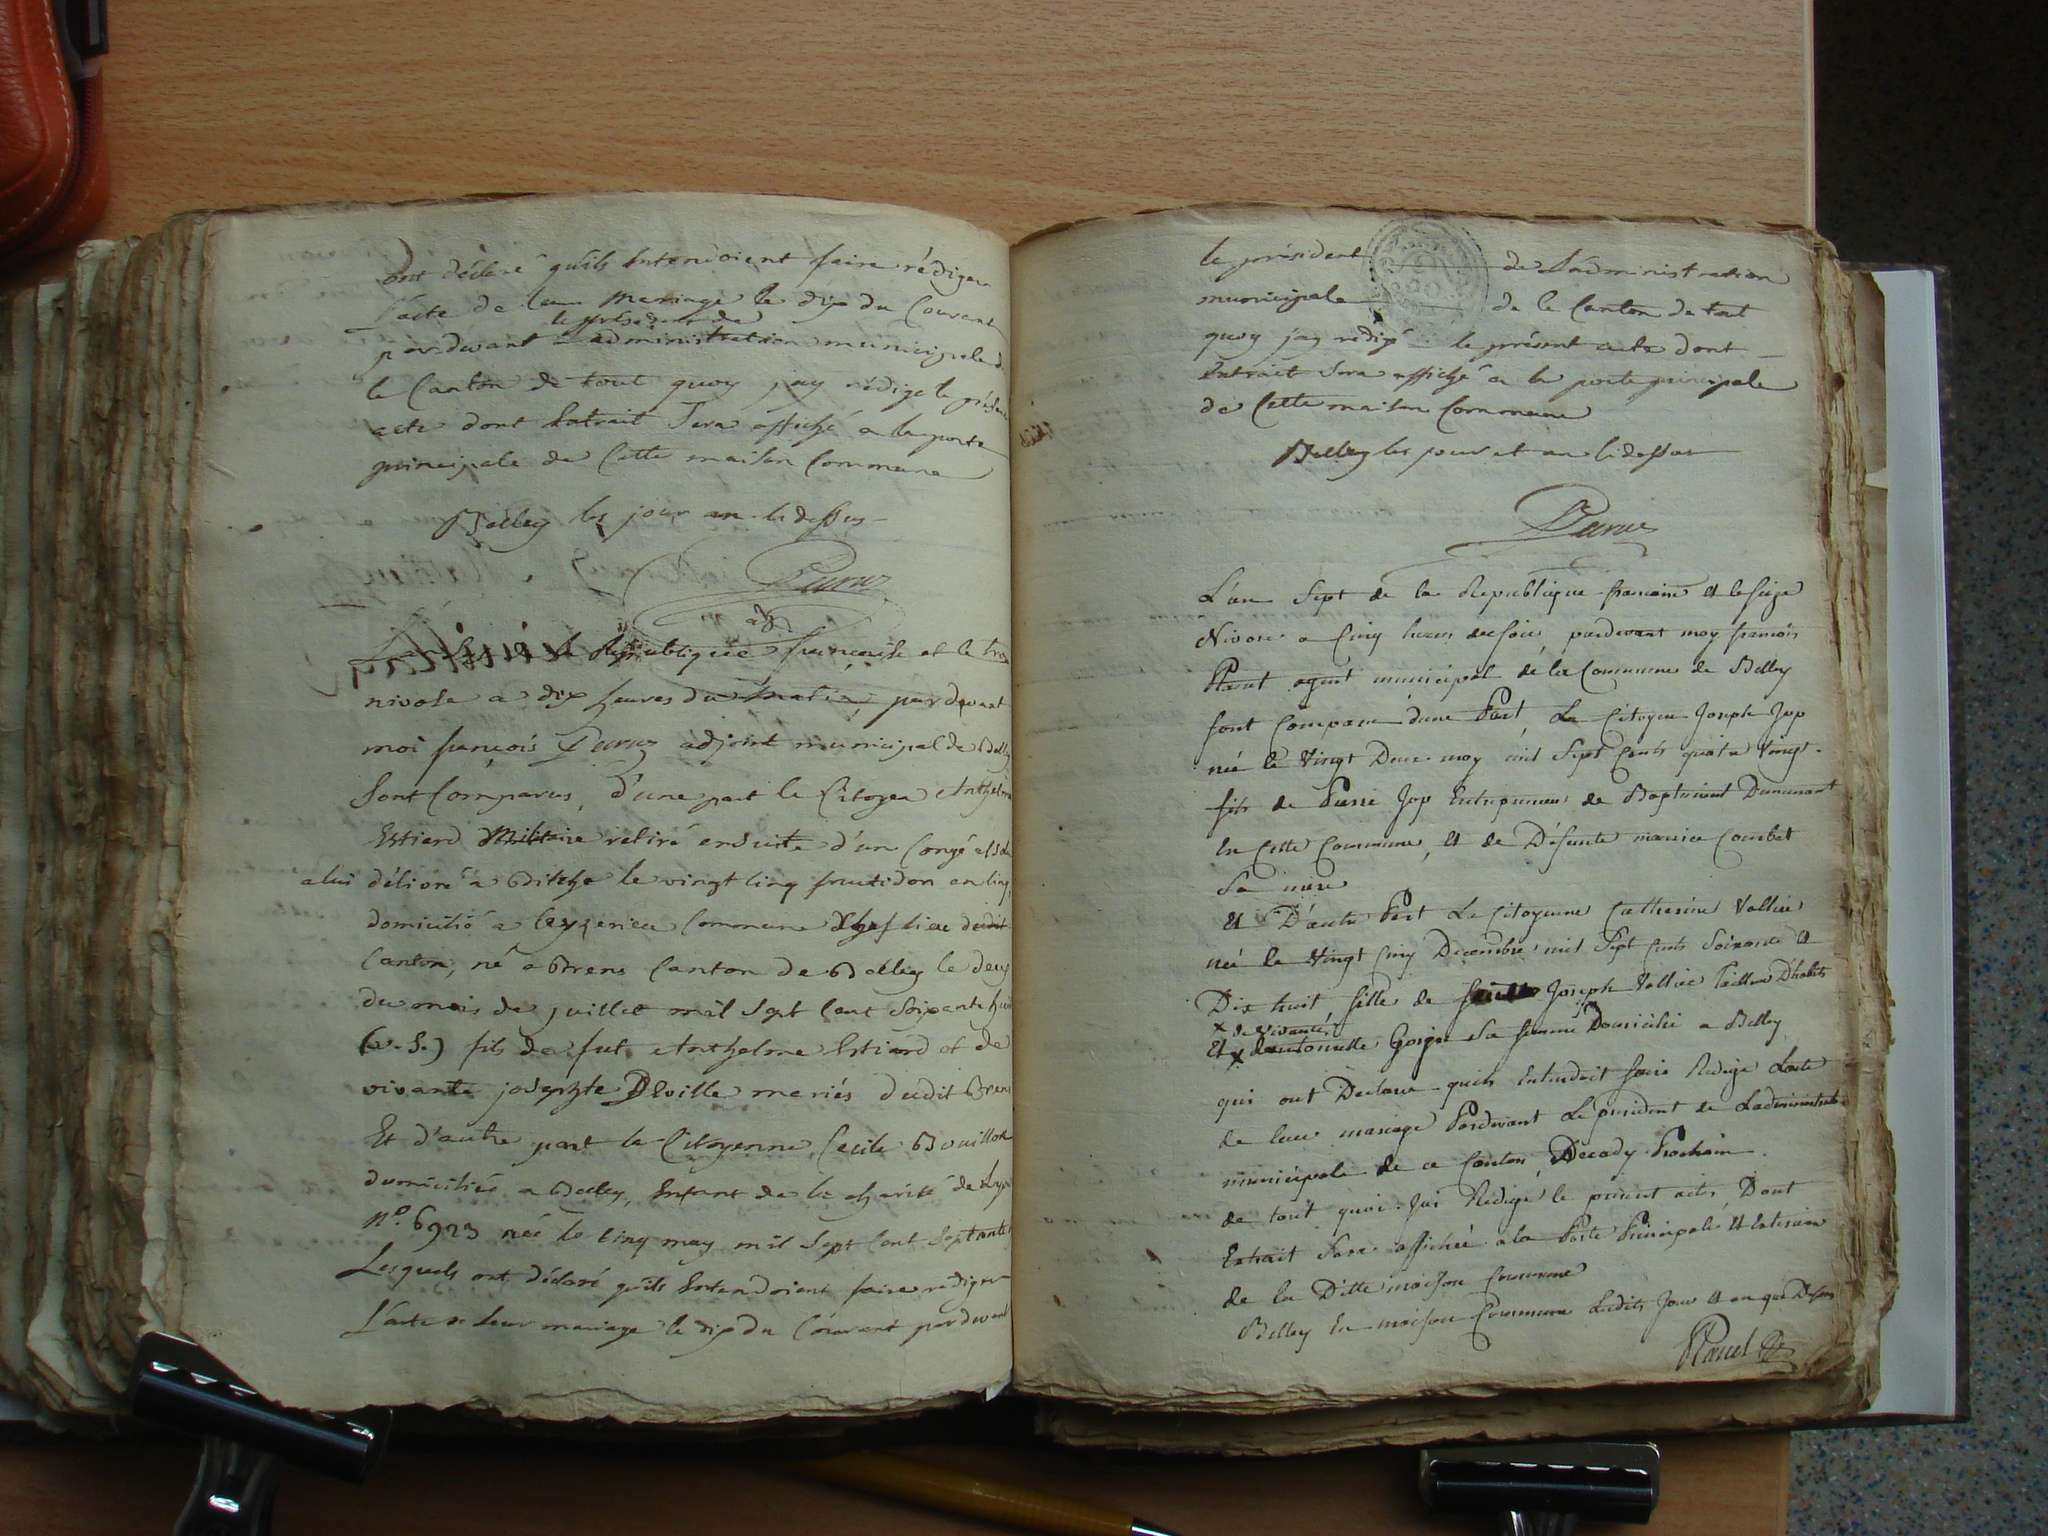 ont déclaré qu'ils Intendoient faire rédiger
l'acte de leur mariage le dix du Courant
le président de
pardevant administration municipale d
le Canton de tout quoy jay rédigé le présent
acte dont Extrait Sera affiché a la porte
principale de Cette maison Commune
Belley les jour an cidessus
Parra
la République française et le
nivose a dix heures du matin, pardevant
moi françois Parra adjoint municipal de Belley
Sont Comparus, d'une part le Citoyen Anthelme
Estierd Militaire retiré ensuite d'un Congé
a lui délivré a Bitche le vingt cinq fructidor an cinq,
domicilié a Ceyzerieu Commune Chef lieu dudit
Canton, né a Brens Canton de Belley le deux
du mois de juillet mil Sept Cent Soixante huit
(v. S.) fils de fut Anthelme Estierd et de
vivante josephte Deville mariés dudit Brens
Et d'autre part la Citoyenne Cecile Bouillon
domiciliée a Belley, Enfant de la charité de Lyon
N°. 6923 née le Cinq may mil Sept Cent Septante
Lesquels ont déclaré qu'ils Entendoient faire rediger
L'acte de leur mariage le dix du Courant pardevant
le président de L'administration
municipale de le Canton de tout
quoy jay rédigé le présent acte dont
Extrait Sera affiché a la porte principale
de Cette maison Commune
Belley les jour et an Cidessus
Parra
L'an Sept de la Republique francaise et le Seize
Nivose a Cinq heures du soir, pardevant moy francois
agent municipal de la Commune de Belley
sont Comparu dune Part, Le Citoyen Joseph Jop
née le Vingt Deux may mil Sept Cents quatre Vingt
fils de Pierre Jop Entrepreneur de Bastiment Demeurant
En Cette Commune, et de Défunte Courbet
Sa mère
Et D'autre Part La Citoyenne Catherine Vallier
née le Vingt Cinq Decembre mil Sept Cents Soixante et
Dix huit, fille de Joseph Vallier Tailleur D'habits
x de Vivante
Et x dantoinette Sa femme Domicilié a Belley
qui ont Declare quils Entendoit faire Redige Lacte
de leur mariage Pardevant Le president de Ladministration
municipale de ce Canton, Decady Prochain
de tout quoi Jai Redigé le present acte, Dont
Extrait Sera affichée a la Porte Principale
de la Ditte maison Commune
Belley En maison Commune Ledits Jour et an que Dessus